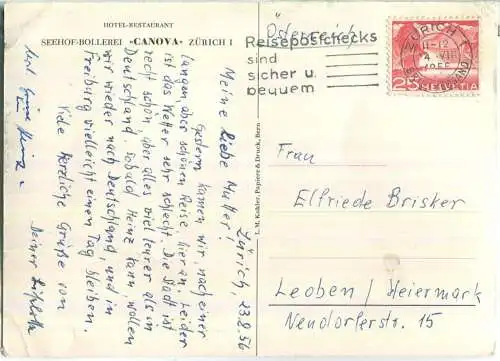 HOTEL-RESTAURANT
SEEHOF-BOLLEREI «CANOVA» ZÜRICH I
Zürich, 23.8.56
Meine liebe Mutter!
Gestern kamen wir nach einer
langen, aber schönen Reise hier an. Leider
ist das Wetter sehr schlecht. Die Stadt ist
recht schön, aber alles viel teurer als in
Deutschland. Sobald Heinz kann wollen
wir wieder nach Deutschland, und in
Freiburg vielleicht einen Tag bleiben.
Viele herzliche Grüße von
Deiner
L. M. Kohler, Papiere & Druck, Bern
Österreich
Reisepostchecks
sind
sicher u.
bequem
ZÜRICH
11-12
VIII
HELVETIA
25
Frau
Elfriede Brisker
Leoben / Steiermark
Nendorferstr. 15